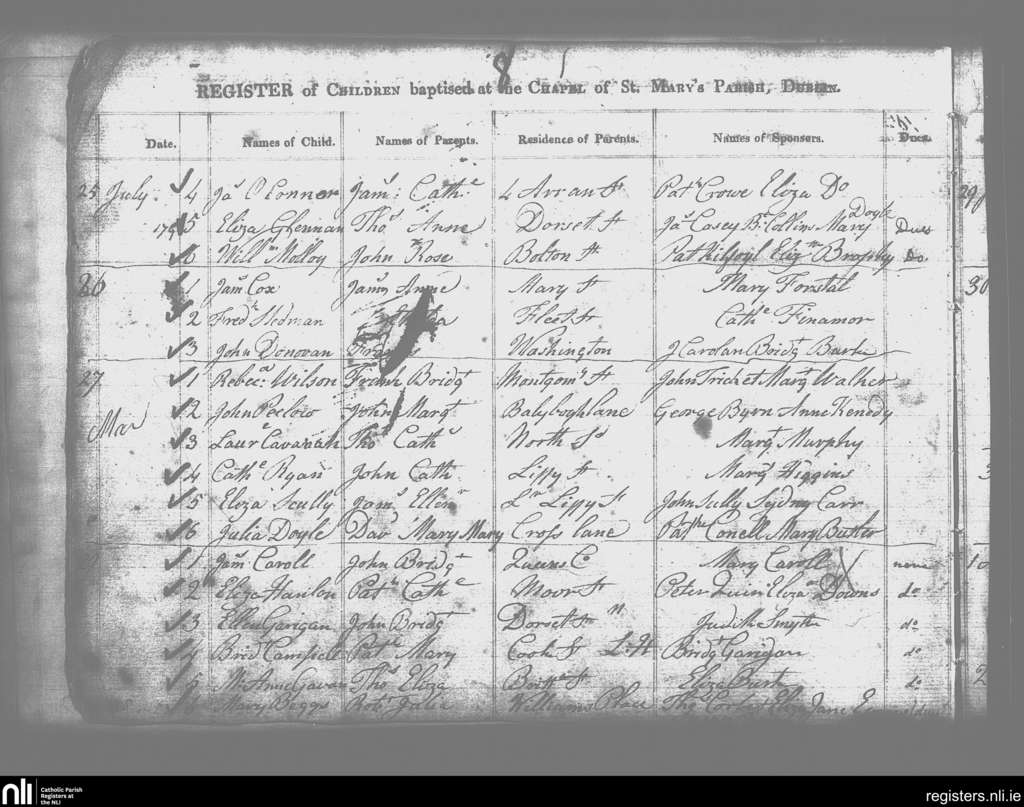 8
REGISTER of CHILDREN baptised at the CHAPEL of St. MARY'S PARISH, DUBLIN.
Date. Names of Child. Names of Parents. Residence of Parents. Names of Sponsors. Dues.
25 July 4 Jas O Connor Jams Cathe 4 Arran St Patk Crowe Eliza Do 29
179 5 Eliza Glennan Thos Anne Dorset St Jas Casey Collins Mary Doyle Dues
6 Willm Molloy John Rose Bolton St Pat Eliz Brophy Do.
26 1 Jam Cox Jams Anne Mary St Mary Forstal 30
2 Fredk Hedman Fleet St Cathe Finamor
3 John Donovan Washington J Carolan Bridgt Burke
27 1 Rebecca Wilson Frank Bridgt Montgomy St John Margt Walker
2 John John Margt Balyboghlane George Byrn Anne Kenedy
3 Laure Cavanah Thos Cath North Sd Margt Murphy
4 Cathe Ryan John Cath Liffy St Margt Higgins
5 Eliza Scully Jams Ellen Lr Liffy St John Scully Sydny Carr
6 Julia Doyle Davd Mary Mary Cross lane Conell Mary Butler
1 Jam Caroll John Bridgt Queens Co Mary Caroll none 10
2 Eliza Hanlon Patk Cathe Moor St Peter Quin Eliza Downs do
3 Ellen Garigan John Bridgt Dorset St Judith Smyth do
4 Brid Patk Mary Cook St Bridgt Garigan do
5 Anne Gavan Thos Eliza Britte St Eliza Burt do 2
6 Mary Beggs Robt Julia Williams Place Thos Jane
nli Catholic Parish
Registers at
the NLI
registers.nli.ie